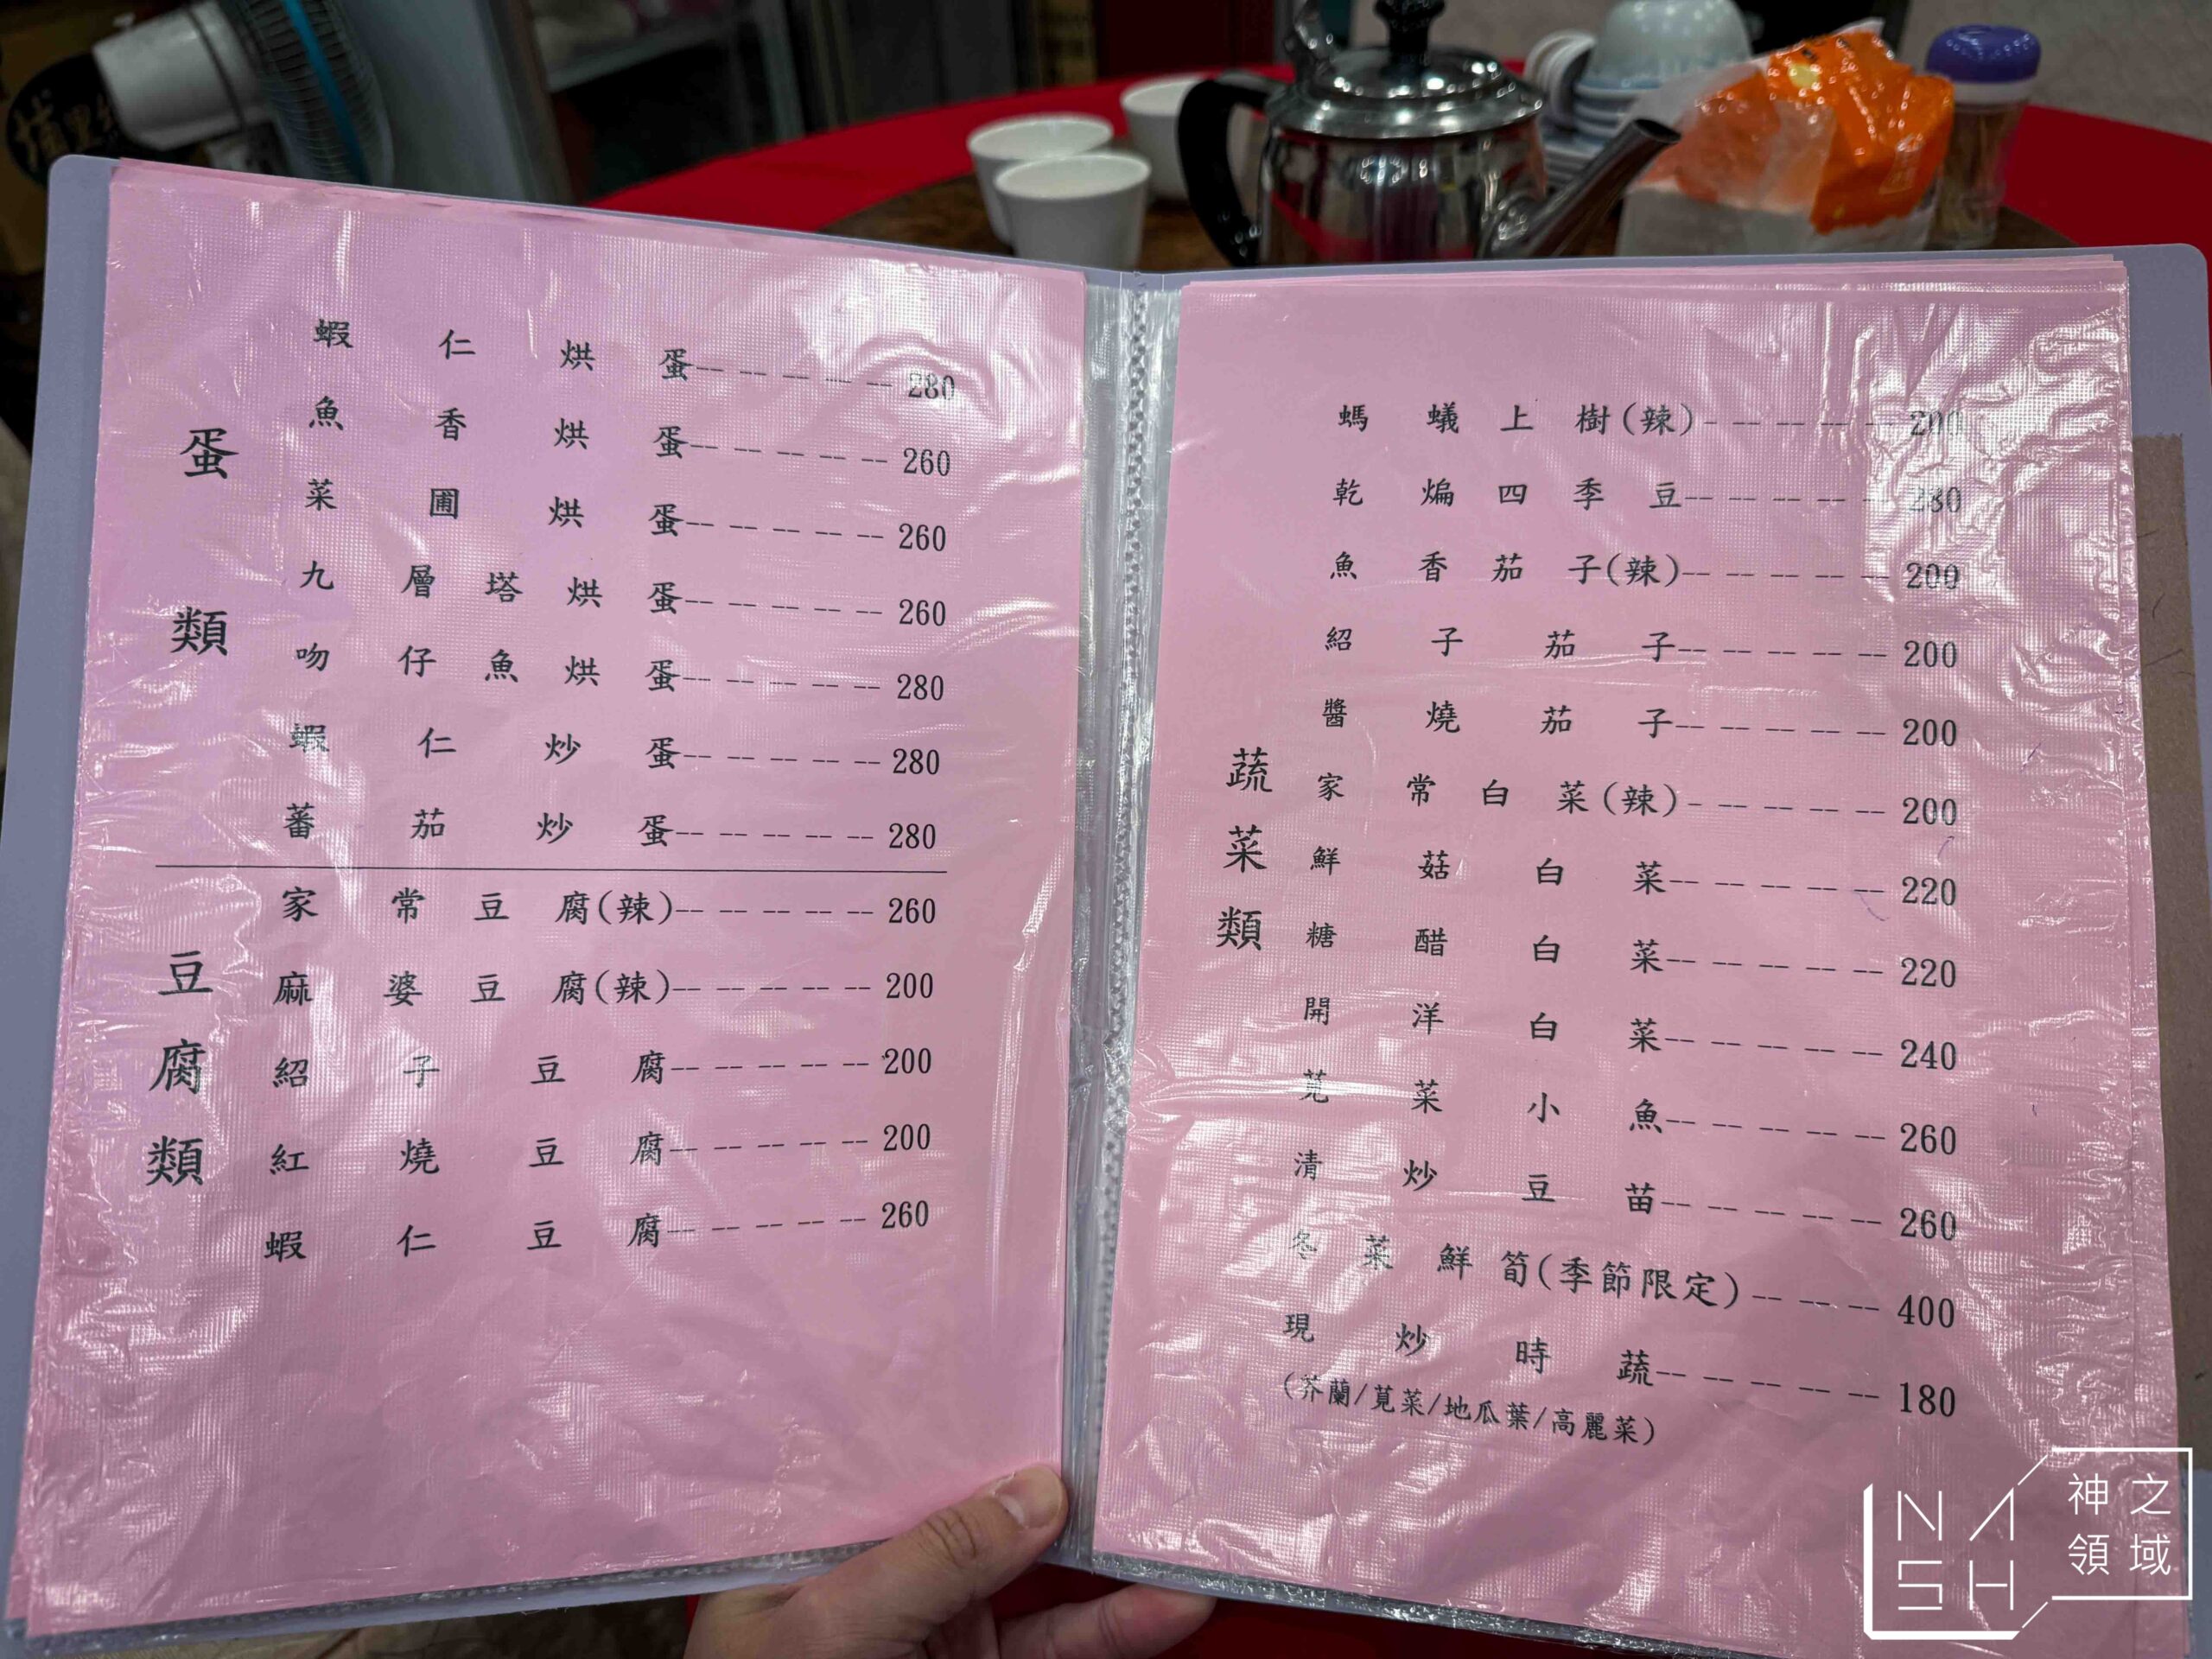 蛋類
蝦仁烘蛋-- -- -- -- -- 280
魚香烘蛋-- -- -- -- -- 260
菜圃烘蛋-- -- -- -- -- 260
九層塔烘蛋-- -- -- -- -- 260
吻仔魚烘蛋-- -- -- -- -- 280
蝦仁炒蛋-- -- -- -- -- 280
蕃茄炒蛋-- -- -- -- -- 280
豆腐類
家常豆腐(辣)-- -- -- -- -- 260
麻婆豆腐(辣)-- -- -- -- -- 200
紹子豆腐-- -- -- -- -- 200
紅燒豆腐-- -- -- -- -- 200
蝦仁豆腐-- -- -- -- -- 260
蔬菜類
螞蟻上樹(辣)- -- -- -- -- 200
乾煸四季豆-- -- -- -- --
魚香茄子(辣)-- -- -- -- -- 200
紹子茄子-- -- -- -- -- 200
醬燒茄子-- -- -- -- -- 200
家常白菜(辣)- -- -- -- -- 200
鮮菇白菜-- -- -- -- -- 220
糖醋白菜-- -- -- -- -- 220
開洋白菜-- -- -- -- -- 240
莧菜小魚-- -- -- -- -- 260
清炒豆苗-- -- -- -- -- 260
冬菜鮮筍(季節限定)-- -- -- 400
現炒時蔬-- -- -- -- -- 180
(芥蘭/莧菜/地瓜葉/高麗菜)
NASH
神之領域